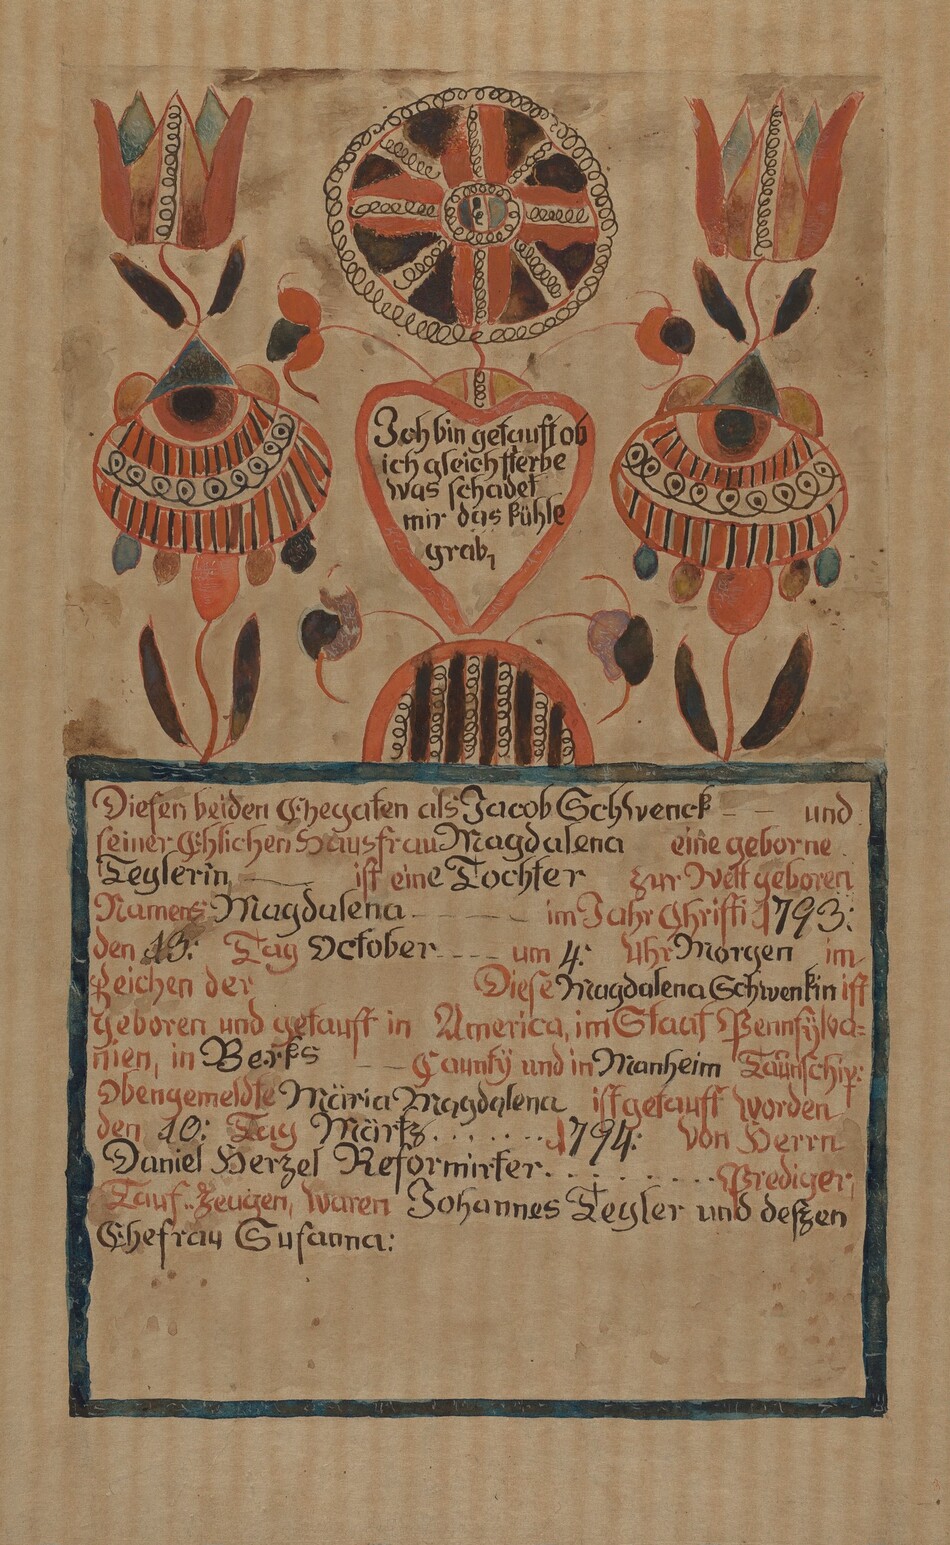 Ich bin getauft ob
ich gleich sterbe
was schadet
mir das kühle
grab,
Diesen beiden Ehegaten als Jacob Schwenck und
seiner Ehlichen Hausfrau Magdalena eine geborne
Teglerin, ist eine Tochter zur Welt geboren
Namens Magdalena im Jahr Christi 1793:
den 13: Tag October um 4: Uhr Morgen im
Zeichen der Diese Magdalena Schwenkin ist
geboren und getauft in America, im Staat Pennsÿlva=
nien, in Berks Cauntÿ und in Manheim Taunschip:
Obengemeldte Maria Magdalena ist getauft worden
den 10: Tag Märtz 1794: von Herrn
Daniel Herzel Reformirter Prediger,
Tauf-Zeugen, waren Johannes Tegler und deßen
Ehefrau Susanna: